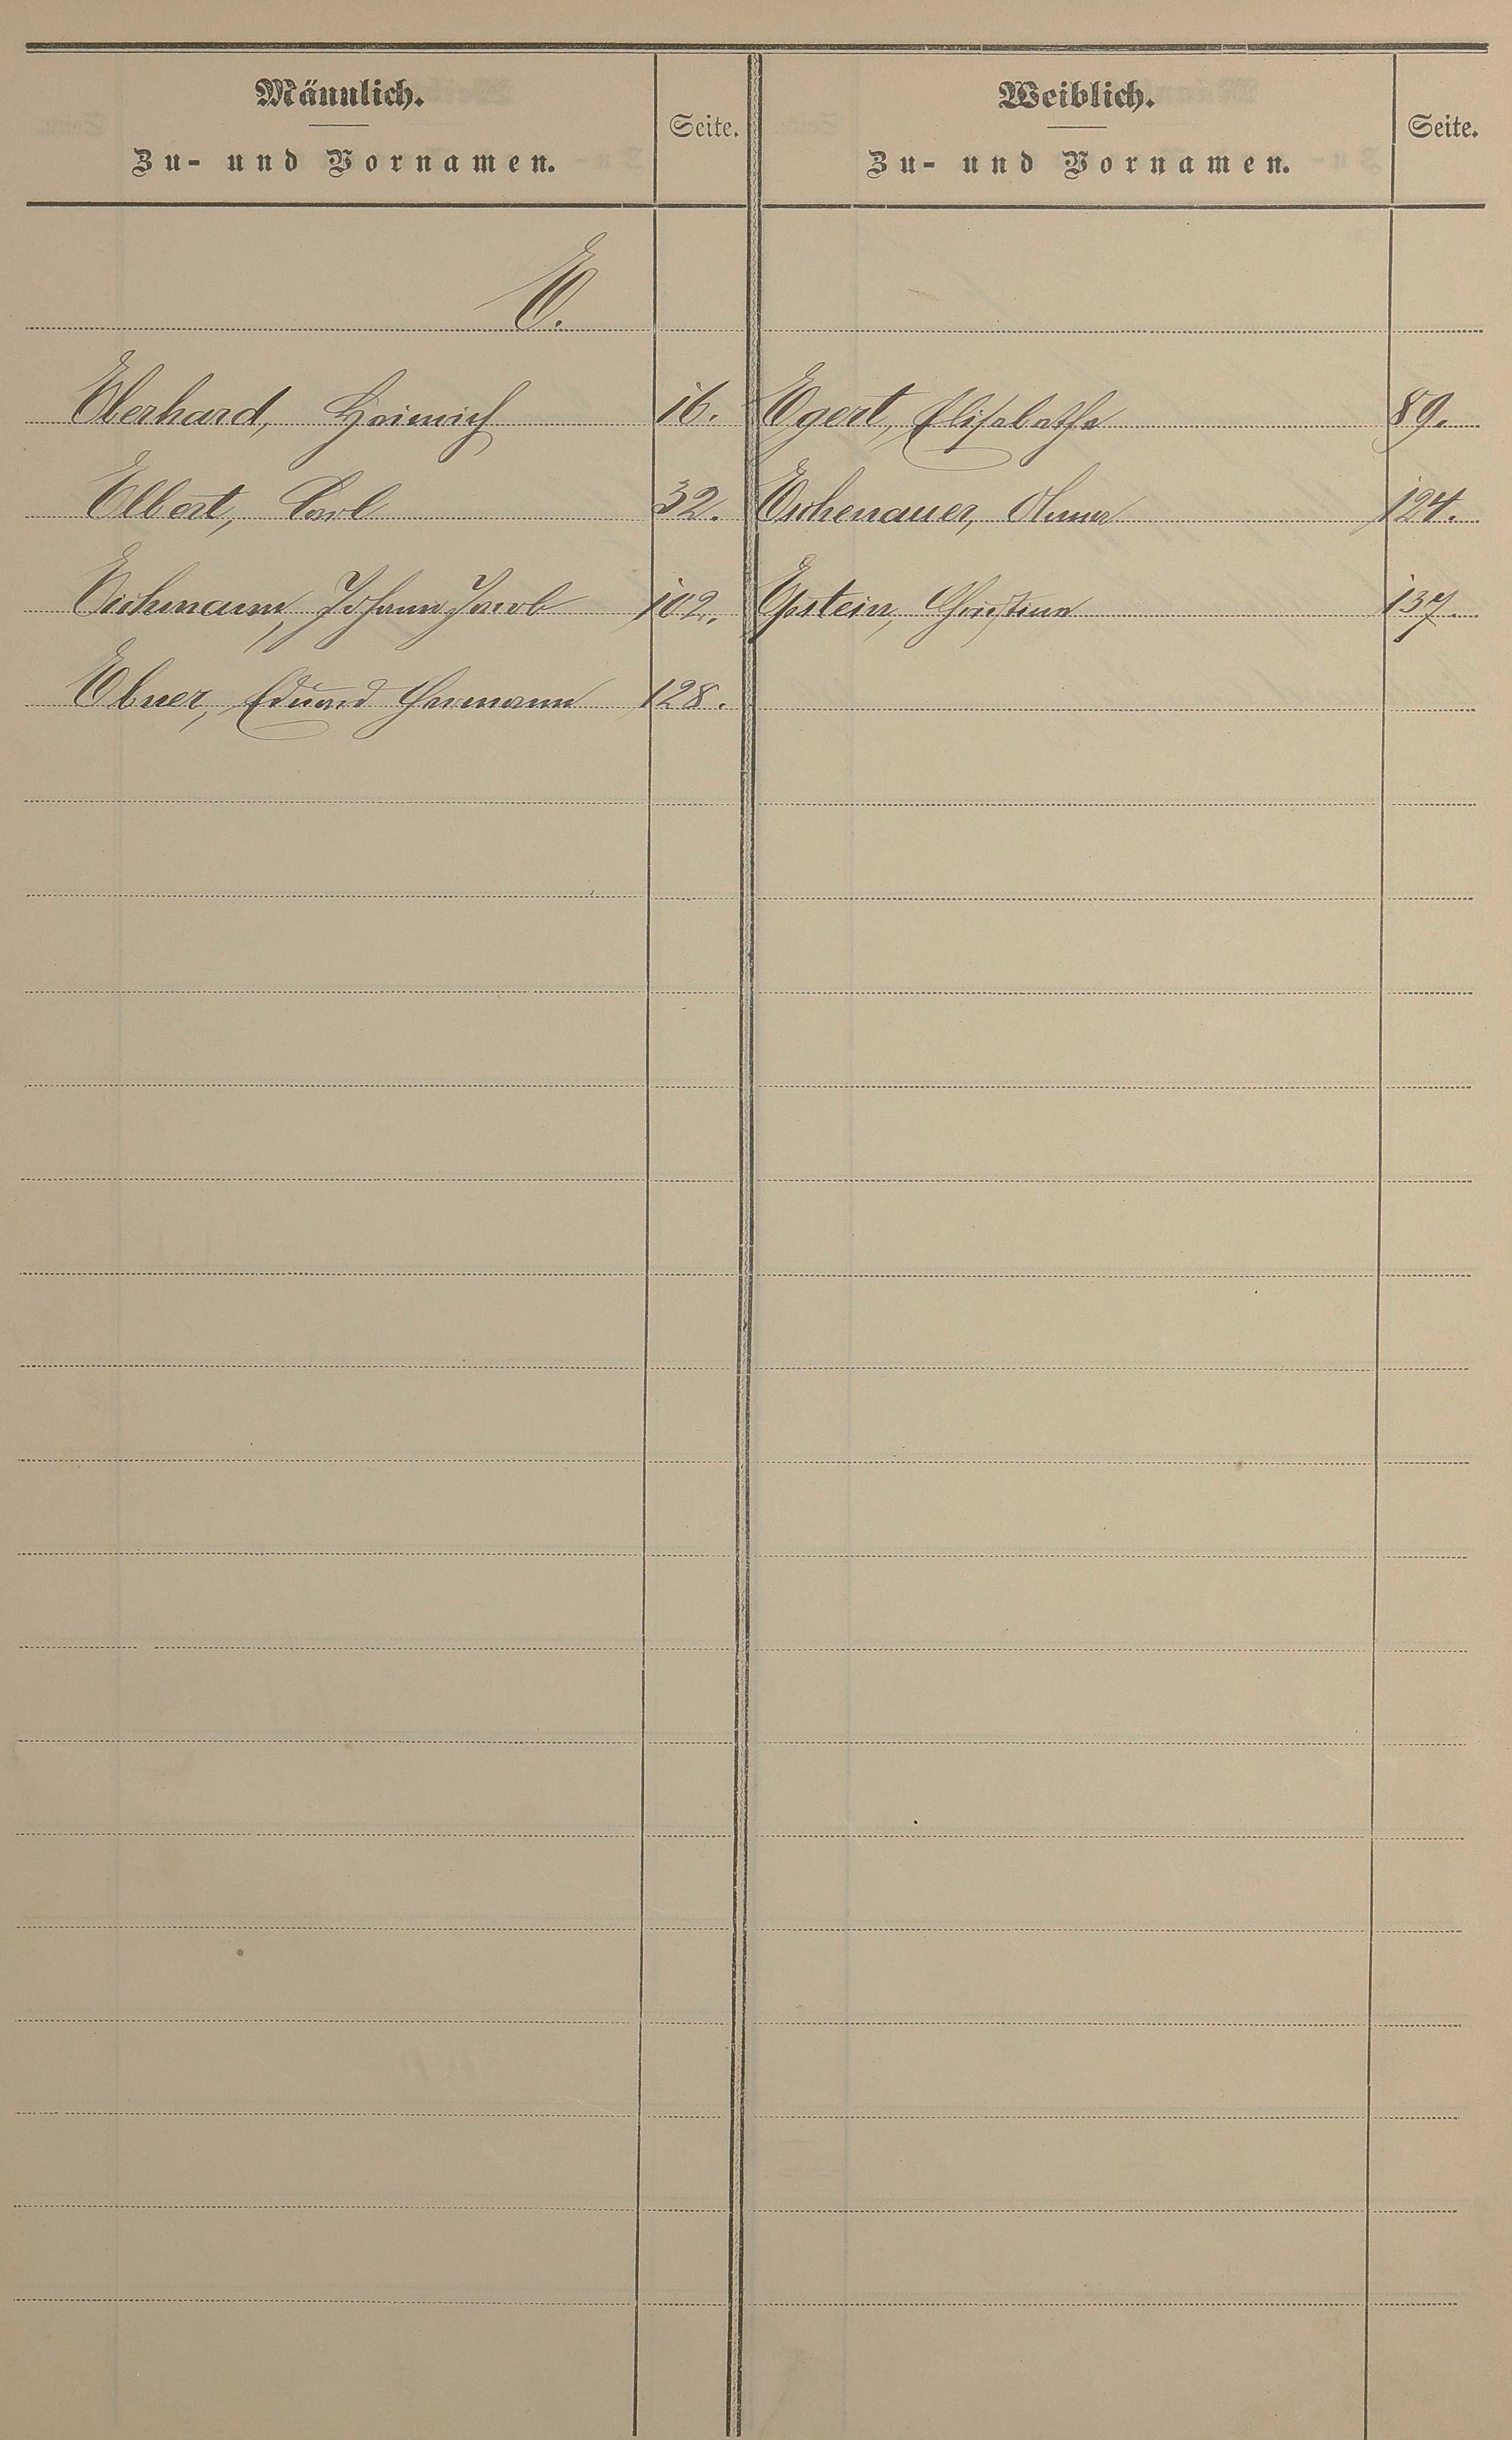 Männlich.
Zu- und Vornamen.
Seite.
Weiblich.
Zu- und Vornamen.
Seite.
E.
Eberhard, Heinrich 16. Egert, Elisabetha 89.
Elbert, Carl 32. Eichenauer, Anna 124.
Eichmann, Johann Jacob 102. Epstein, Christina 137.
Ebner, Eduard Hermann 128.